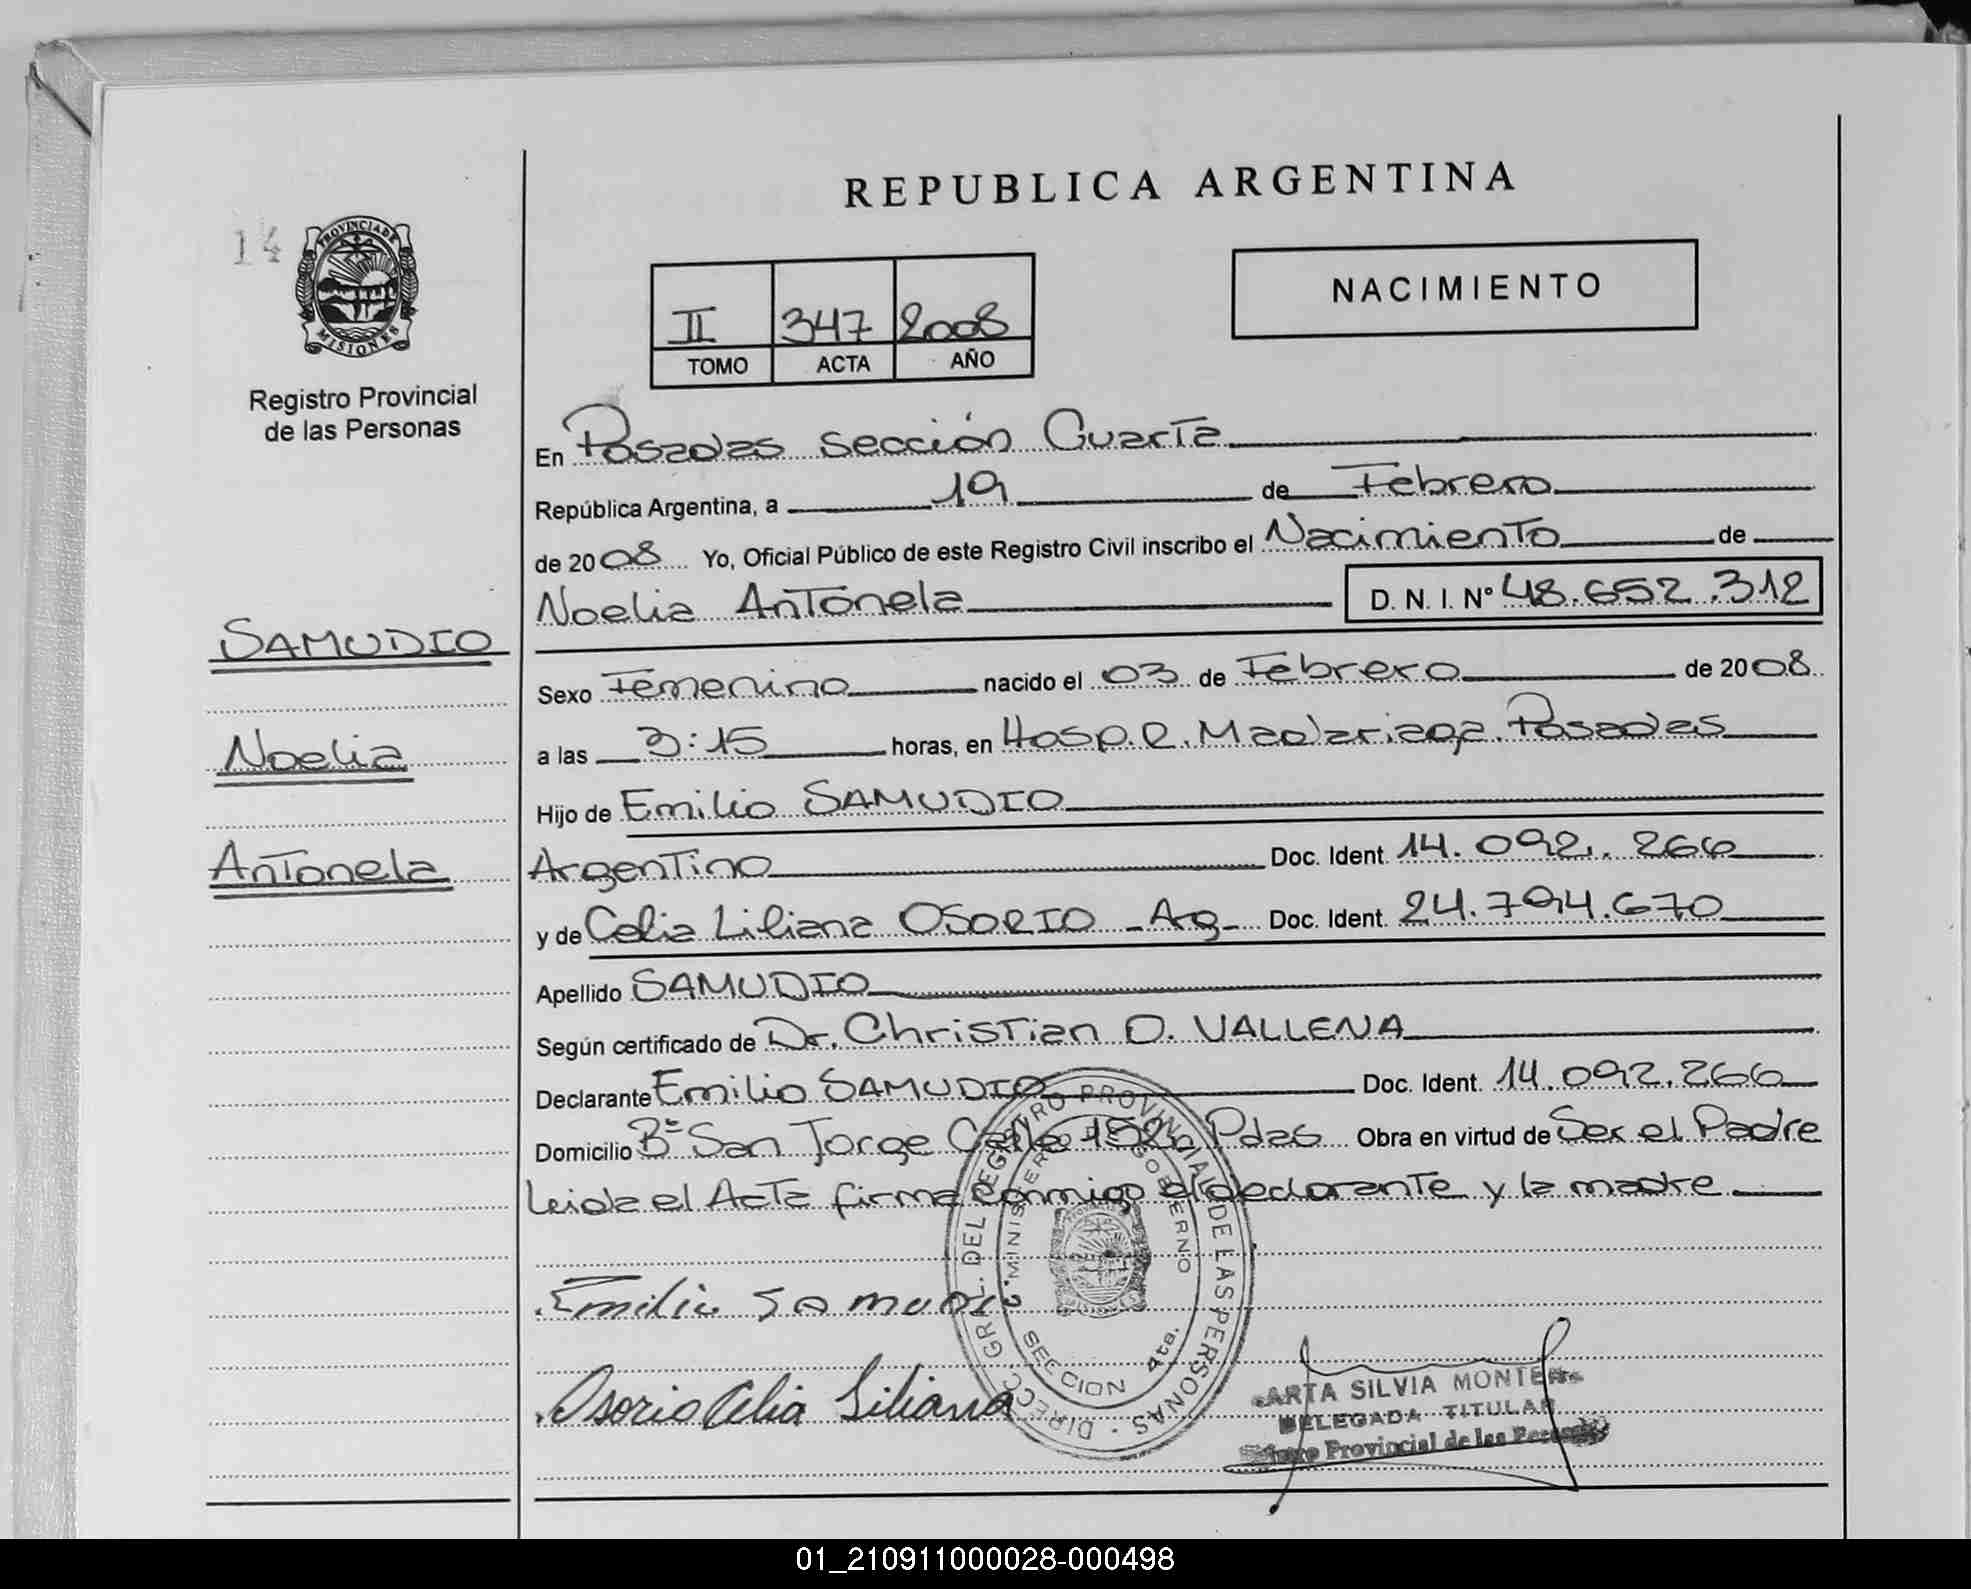 REPUBLICA ARGENTINA
14
PROVINCIA DE MISIONES
Registro Provincial
de las Personas
II 347 2008
TOMO ACTA AÑO
NACIMIENTO
En Posadas sección Cuarta
República Argentina, a 19 de Febrero
de 2008 Yo, Oficial Público de este Registro Civil inscribo el Nacimiento de
Noelia Antonela D. N. I. Nº 48.652.312
SAMUDIO
Noelia
Antonela
Sexo Femenino nacido el 03 de Febrero de 2008
a las 3:15 horas, en Hosp. R. Madariaga. Posadas
Hijo de Emilio SAMUDIO
Argentino Doc. Ident. 14.092.266
y de Celia Liliana OSORIO - Ag - Doc. Ident. 24.794.670
Apellido SAMUDIO
Según certificado de Dr. Christian O. VALLENA
Declarante Emilio SAMUDIO Doc. Ident. 14.092.266
Domicilio Bº San Jorge Calle Pdas Obra en virtud de Ser el Padre
Leida el Acta firma conmigo el declarante y la madre
Emilio Samudio
Osorio Celia Liliana
DIRECC. GRAL. DEL REGISTRO PROVINCIAL DE LAS PERSONAS
MINISTERIO DE GOBIERNO
SECCION 4ta.
ARTA SILVIA MONTE
DELEGADA TITULAR
Provincial de las
01_210911000028-000498